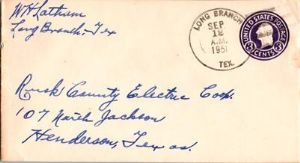 W H Latham
Long Branch - Tex
LONG BRANCH
SEP
12
A.M.
1951
TEX.
UNITED STATES POSTAGE
Rusk County Electric Coop.
107 North Jackson
Henderson, Texas.